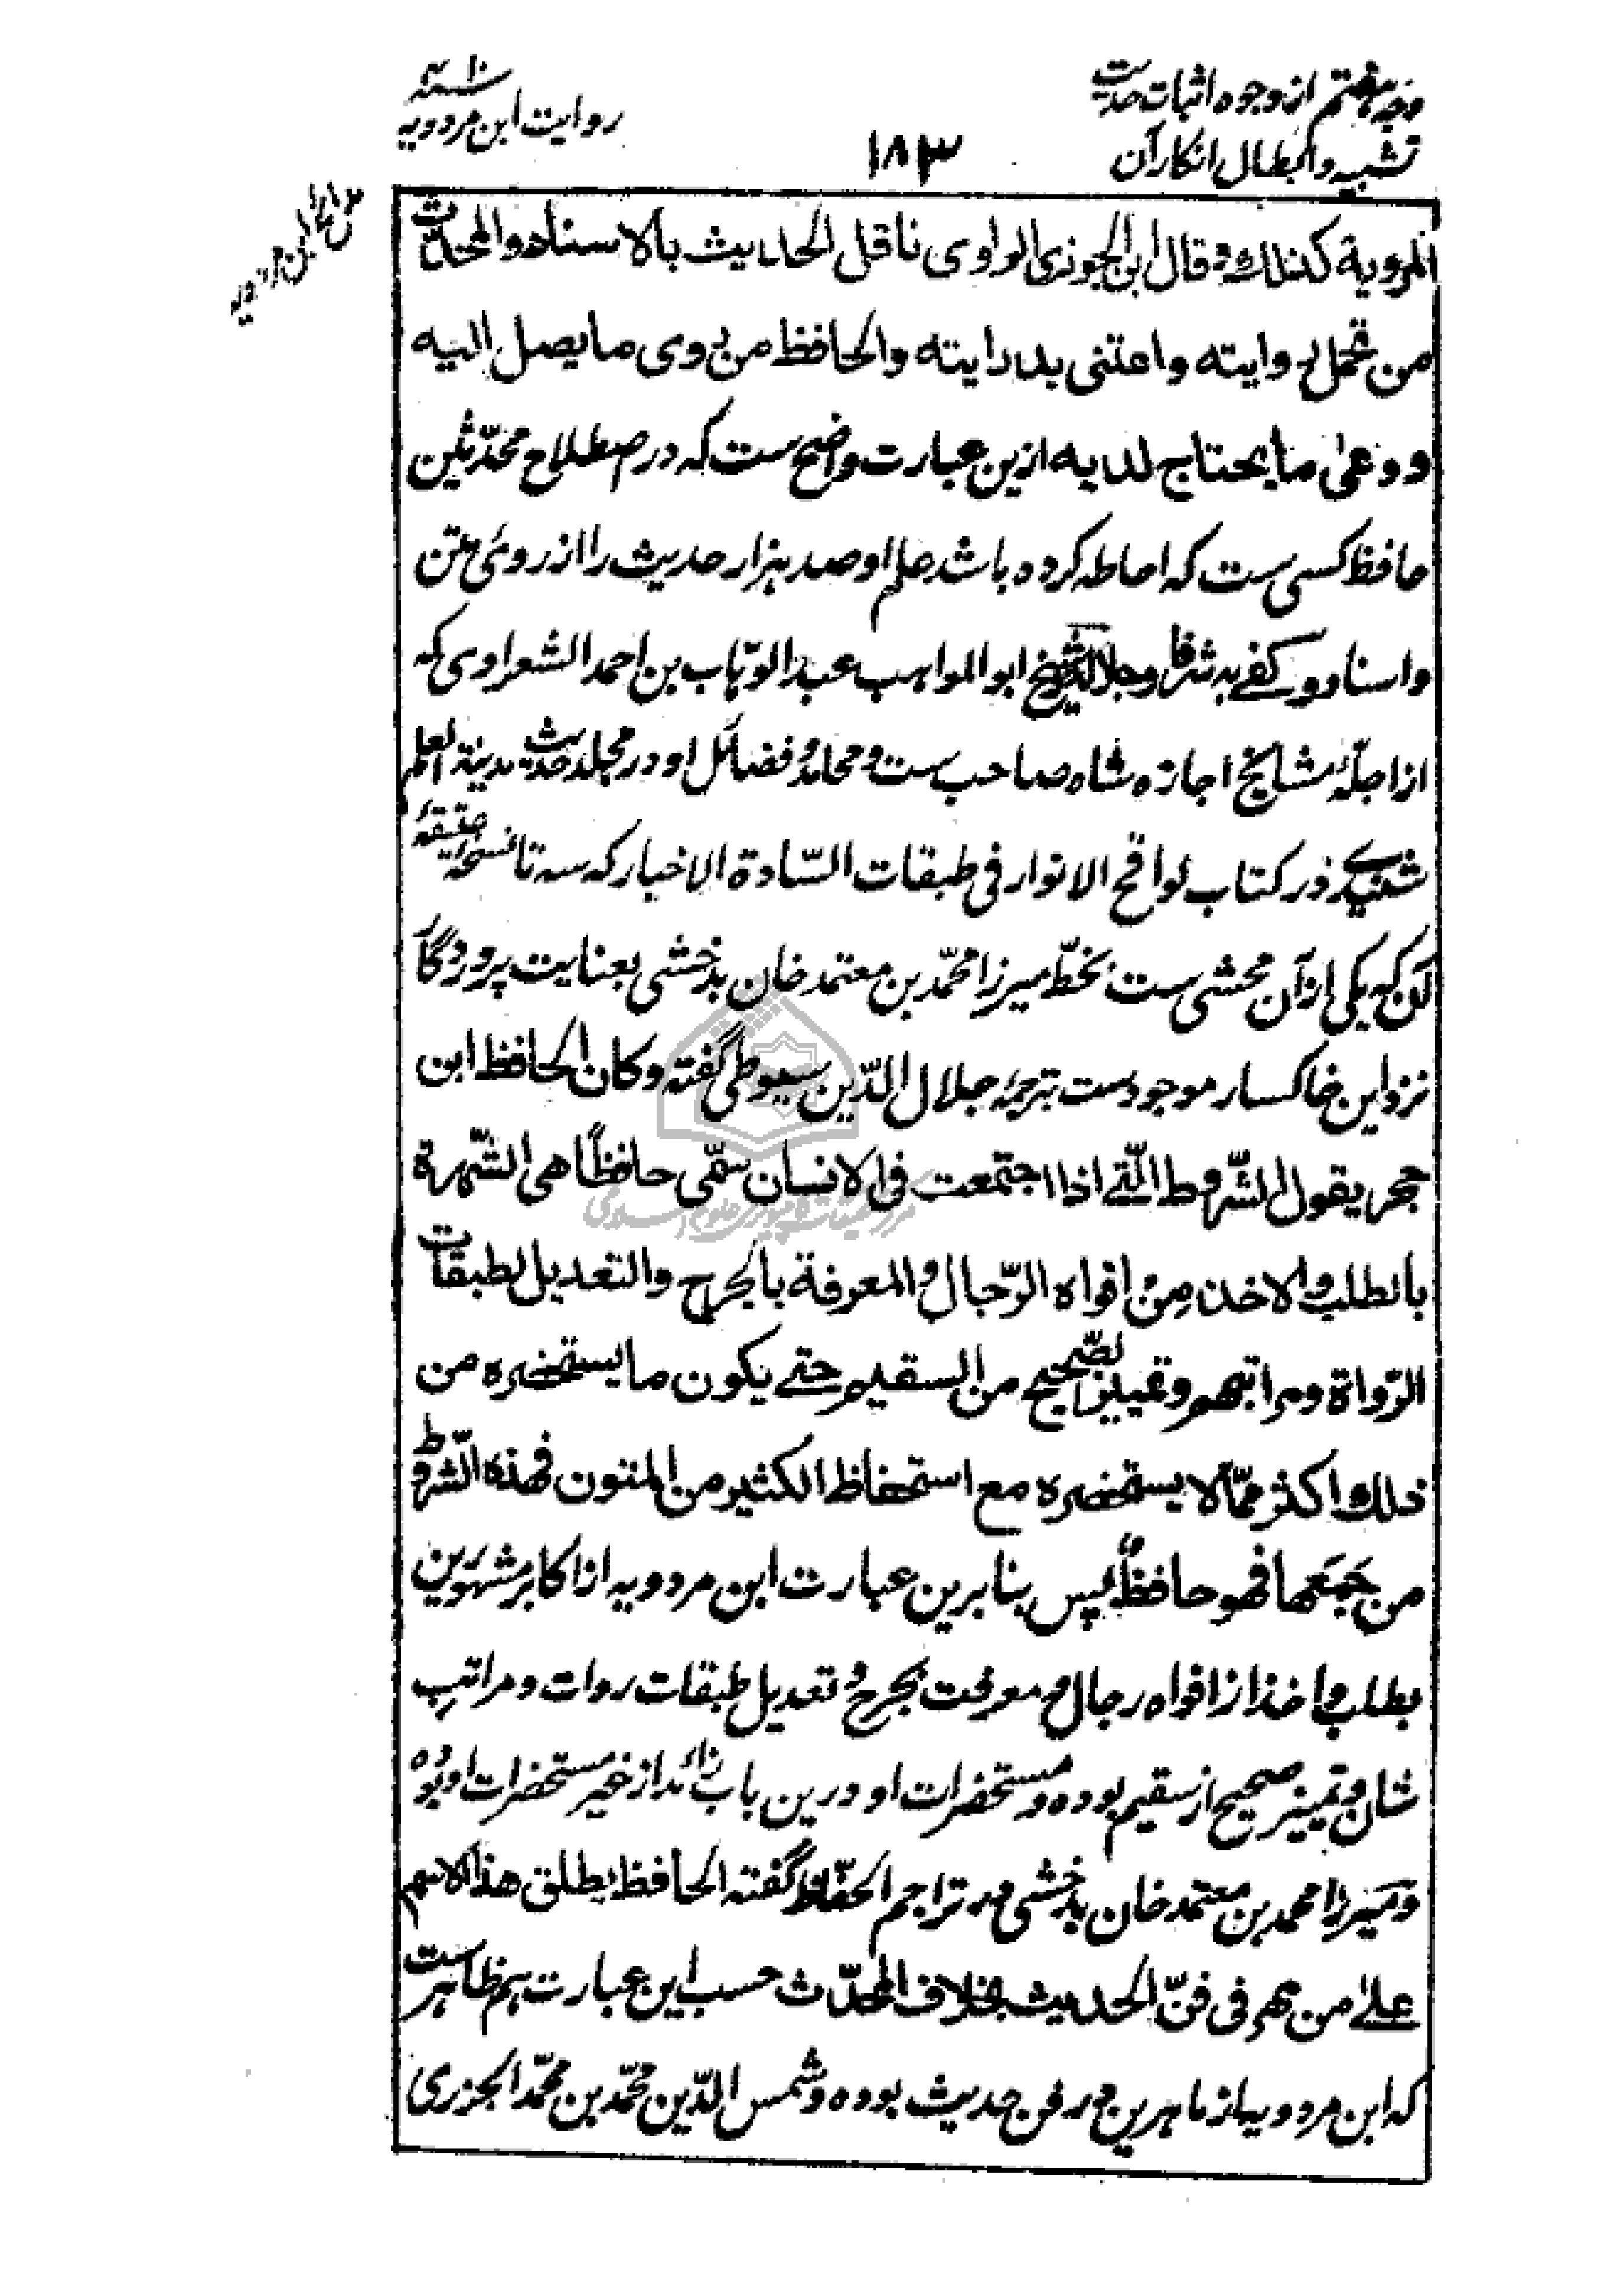 وجه هفتم از وجوه اثبات حدیث
تشبیه و ابطال انکار آن
۱۸۳
روایت ابن مردویه
المرویة کذلک و قال ابن الجوزی الراوی ناقل الحدیث بالاسناد و المحدّث
من تحمل روایته و اعتنی بدرایته و الحافظ من روی ما یصل الیه
و وعی ما یحتاج لدیه ازین عبارت واضح ست که در صطلاح محدّثین
حافظ کسی ست که احاطه کرده باشد علم او صد هزار حدیث را از روی متن
و اسناد و کفی به شرفا و جلالة و شیخ ابو المواهب عبد الوهّاب بن احمد الشعراوی که
از اجلّهٔ مشایخ اجازه شاه صاحب ست و محامد و فضائل او در مجلد حدیث مدینة العلم
شنیدی در کتاب لواقح الانوار فی طبقات السّادة الاخیار که سه تا نسخهٔ عتیقهٔ
آن که یکی از آن محشی ست بخطّ میرزا محمّد بن معتمد خان بدخشی بعنایت پروردگار
نزد این خاکسار موجود ست بترجمهٔ جلال الدّین سیوطی گفته و کان الحافظ ابن
حجر یقول الشّروط الّتی اذا اجتمعت فی الانسان سمّی حافظًا هی الشّهرة
بالطلب و الاخذ من افواه الرّجال و المعرفة بالجرح و التعدیل لطبقات
الرّواة و مراتبهم و تمییز الصّحیح من السقیم حتی یکون ما یستحضره من
ذلک اکثر ممّا لا یستحضره مع استحفاظ الکثیر من المتون فهذه الشّروط
من جمَعَها فهو حافظٌ پس بنابرین عبارت ابن مردویه از اکابر مشهورین
بطلب و اخذ از افواه رجال و معرفت بجرح و تعدیل طبقات روات و مراتب
شان و تمییز صحیح از سقیم بوده و مستحضرات او درین باب زائد از غیر مستحضرات او بوده
و میرزا محمد بن معتمد خان بدخشی در تراجم الحفّاظ گفته الحافظ یطلق هذا الاسم
علی من مهر فی فنّ الحدیث بخلاف المحدّث حسب این عبارت هم ظاهرست
که ابن مردویه از ماهرین در فن حدیث بوده و شمس الدّین محمّد بن محمّد الجزری